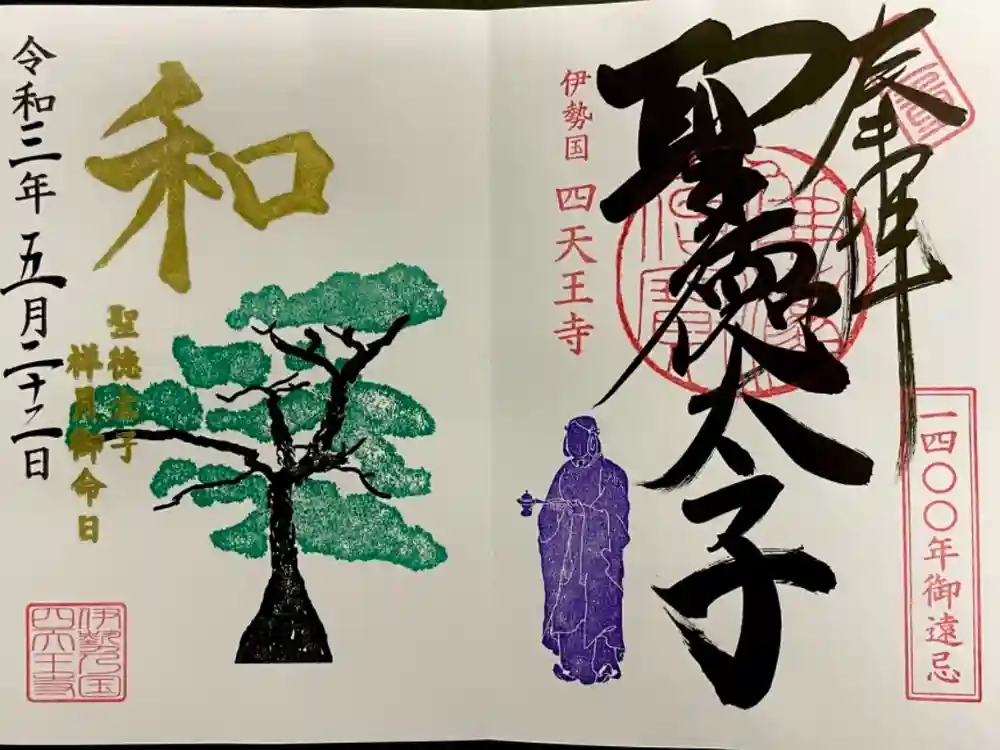 奉拝
聖徳太子
一四〇〇年御遠忌
伊勢国 四天王寺
和
聖徳太子
祥月御命日
令和三年 五月二十二日
伊勢乃国
四天王寺